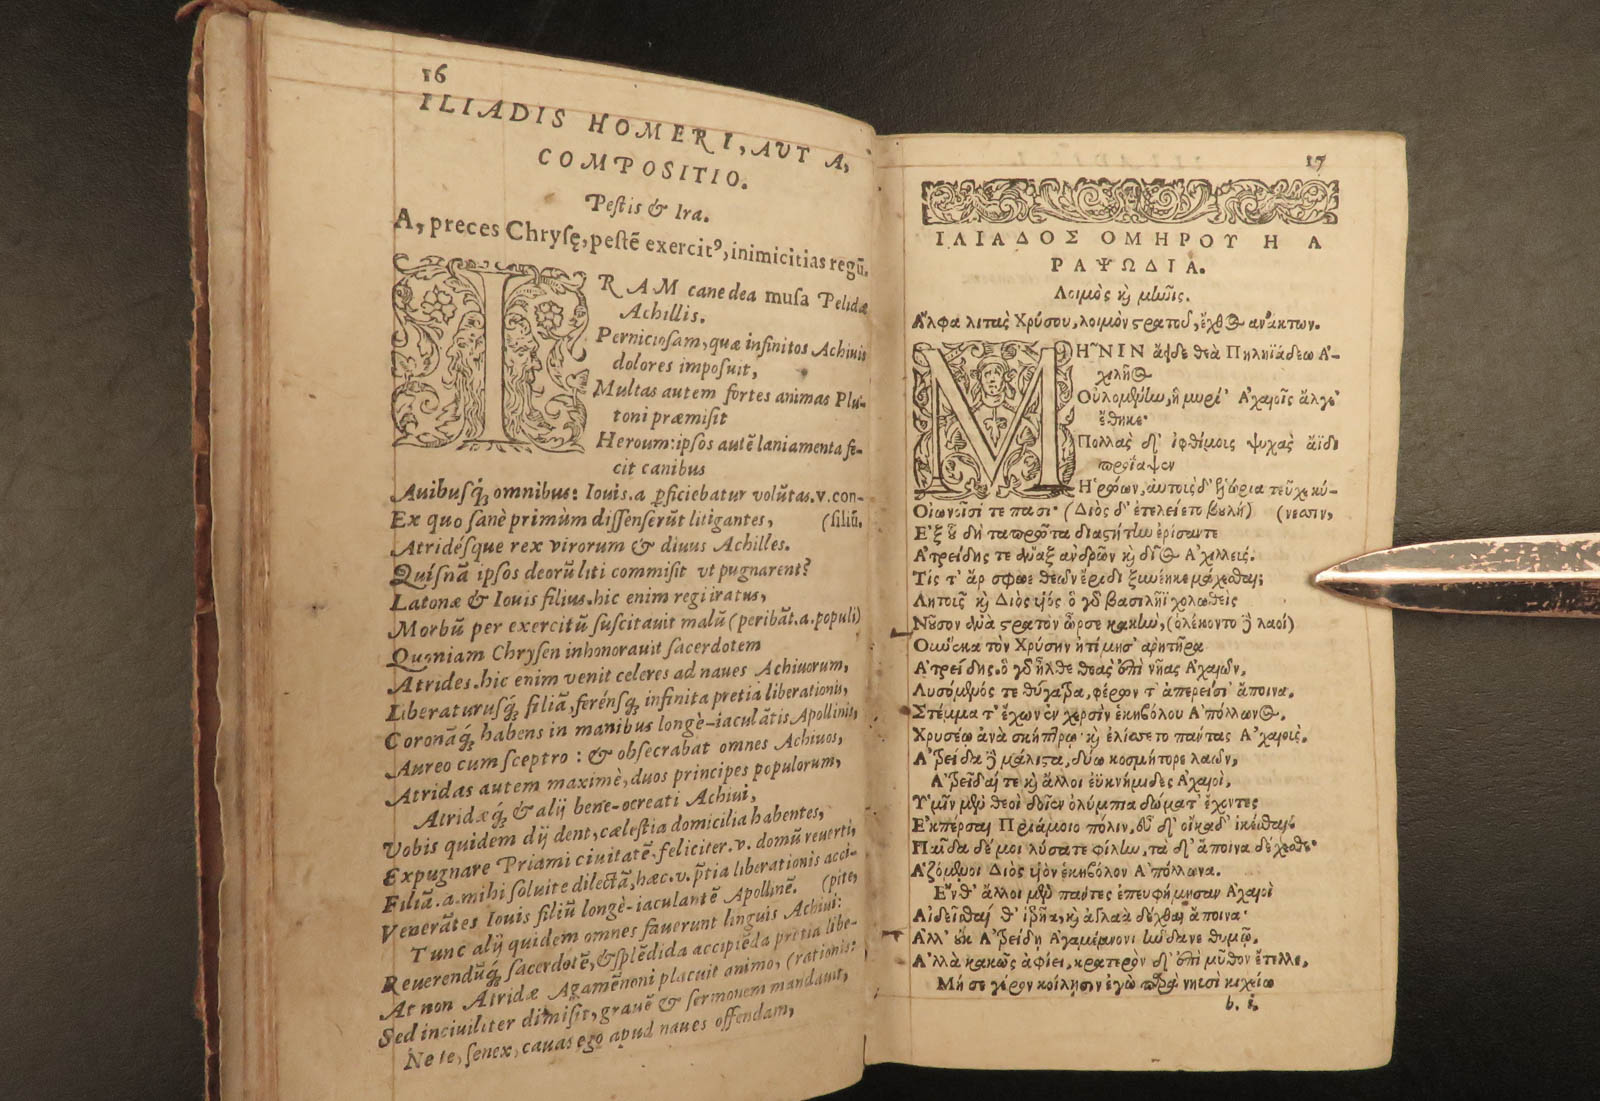 16
ILIADIS HOMERI, AVT A,
COMPOSITIO.
Pestis & Ira.
A, preces Chrysę, pestē exercitꝰ, inimicitias regū.
IRAM cane dea musa Pelidæ
Achillis.
Perniciosam, quæ infinitos Achiuis
dolores imposuit,
Multas autem fortes animas Plu-
toni præmisit
Heroum: ipsos autē laniamenta fe-
cit canibus
Auibusq́; omnibus: Iouis.a ꝑficiebatur volūtas.v.con-
Ex quo sanè primùm dissenserūt litigantes, (siliū.
Atridésque rex virorum & diuus Achilles.
Quísnā ipsos deorū liti commisit vt pugnarent?
Latonæ & Iouis filius.hic enim regi iratus,
Morbū per exercitū suscitauit malū (peribāt.a.populi)
Quoniam Chrysen inhonorauit sacerdotem
Atrides.hic enim venit celeres ad naues Achiuorum,
Liberaturusq́; filiā, ferénsq́; infinita pretia liberationis,
Coronāq́; habens in manibus longè-iaculātis Apollinis,
Aureo cum sceptro: & obsecrabat omnes Achiuos,
Atridas autem maximè, duos principes populorum,
Atridæq́; & alij bene-ocreati Achiui,
Vobis quidem dij dent, cælestia domicilia habentes,
Expugnare Priami ciuitatē.feliciter.v.domū reuerti,
Filiā.a.mihi soluite dilectā, hæc.v.p̄tia liberationis acci-
Venerātes Iouis filiū longè-iaculantē Apollinē. (pite,
Tunc alij quidem omnes fauerunt linguis Achiui:
Reuerendūq́; sacerdotē, & splēdida accipiēda pretia libe-
At non Atridæ Agamēnoni placuit animo, (rationis:
Sed inciuiliter dimisit, grauē & sermonem mandauit,
Ne te, senex, cauas ego apud naues offendam,
17
ΙΛΙΑΔΟΣ ΟΜΗΡΟΥ Η Α
ΡΑΨΩΔΙΑ.
Λοιμὸς κὶ μῆνις.
Α῎λφα λιτὰς Χρύσου, λοιμὸν στρατοῦ, ἔχθος ἀνάκτων.
ΜΗ͂ΝΙΝ ἄειδε θεὰ Πηληϊάδεω Α᾿-
χιλῆος
Οὐλομένην, ἣ μυρί' Α᾿χαιοῖς ἄλγε'
ἔθηκε·
Πολλὰς δ' ἰφθίμους ψυχὰς ἄϊδι
προΐαψεν
Η῾ρώων, αὐτοὺς δ' ἑλώρια τεῦχε κύ-
Οἰωνοῖσί τε πᾶσι· (Διὸς δ' ἐτελείετο βουλή) (νεσσιν,
Ε᾿ξ οὗ δὴ τὰ πρῶτα διαστήτην ἐρίσαντε
Α᾿τρείδης τε ἄναξ ἀνδρῶν κὶ δῖος Α᾿χιλλεύς.
Τίς τ' ἄρ σφωε θεῶν ἔριδι ξυνέηκε μάχεσθαι;
Λητοῦς κὶ Διὸς υἱός· ὁ γὰρ βασιλῆϊ χολωθεὶς
Νοῦσον ἀνὰ στρατὸν ὦρσε κακὴν, (ὀλέκοντο δὲ λαοί)
Οὕνεκα τὸν Χρύσην ἠτίμησ' ἀρητῆρα
Α᾿τρείδης· ὁ γὰρ ἦλθε θοὰς ἐπὶ νῆας Α᾿χαιῶν,
Λυσόμενός τε θύγατρα, φέρων τ' ἀπερείσι' ἄποινα.
Στέμμα τ' ἔχων ἐν χερσὶν ἑκηβόλου Α᾿πόλλωνος,
Χρυσέῳ ἀνὰ σκήπτρῳ· κὶ ἐλίσσετο πάντας Α᾿χαιοὺς.
Α᾿τρείδα δὲ μάλιστα, δύω κοσμήτορε λαῶν,
Α᾿τρεῖδαί τε κὶ ἄλλοι ἐϋκνήμιδες Α᾿χαιοὶ,
Υ῾μῖν μὲν θεοὶ δοῖεν ὀλύμπια δώματ' ἔχοντες
Ε᾿κπέρσαι Πριάμοιο πόλιν, εὖ δ' οἴκαδ' ἱκέσθαι·
Παῖδα δέ μοι λύσατε φίλην, τὰ δ' ἄποινα δέχεσθε·
Α῾ζόμενοι Διὸς υἱὸν ἑκηβόλον Α᾿πόλλωνα.
Ε῎νθ' ἄλλοι μὲν πάντες ἐπευφήμησαν Α᾿χαιοὶ
Αἰδεῖσθαί θ' ἱερῆα, κὶ ἀγλαὰ δέχθαι ἄποινα·
Α᾿λλ' οὐκ Α᾿τρείδῃ Α᾿γαμέμνονι ἥνδανε θυμῷ,
Α᾿λλὰ κακῶς ἀφίει, κρατερὸν δ' ἐπὶ μῦθον ἔτελλε,
Μή σε γέρον κοίλῃσιν ἐγὼ παρὰ νηυσὶ κιχείω
b. i.